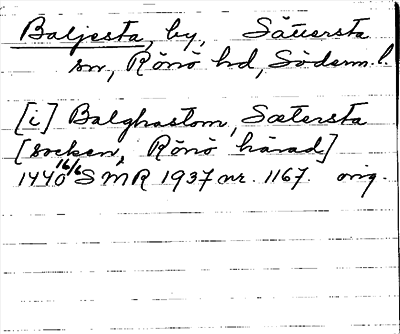 Baljesta, by, Sättersta
sn, Rönö hd, Söderm. l.
[i] Balghastom, Sætersta
[socken, Rönö härad]
1440 16/6 SMR 1937 nr. 1167. orig.